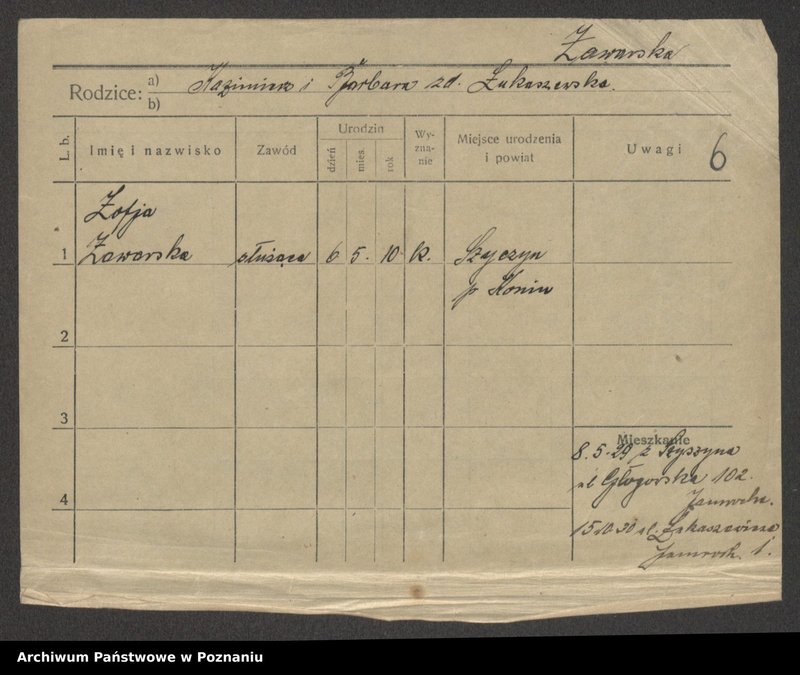 Żawarska
Rodzice: a) Kazimierz i Barbara zd. Łukaszewska.
b)
L. b. Imię i nazwisko Zawód Urodzin dzień mies. rok Wy-zna-nie Miejsce urodzenia i powiat Uwagi 6
Zofja
1 Żawarska służąca 6 5. 10 k.
p Konin
2
3
Mieszkanie
8.5.29 z
ul Głogowska 102.
4
15 10 30 ul.
1.
Archiwum Państwowe w Poznaniu